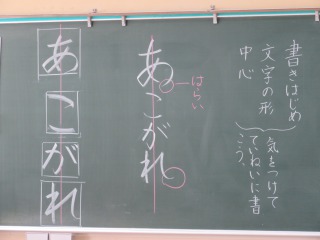 書きはじめ
文字の形
中心
気をつけて
ていねいに書
こう。
あこがれ
はらい
あこがれ